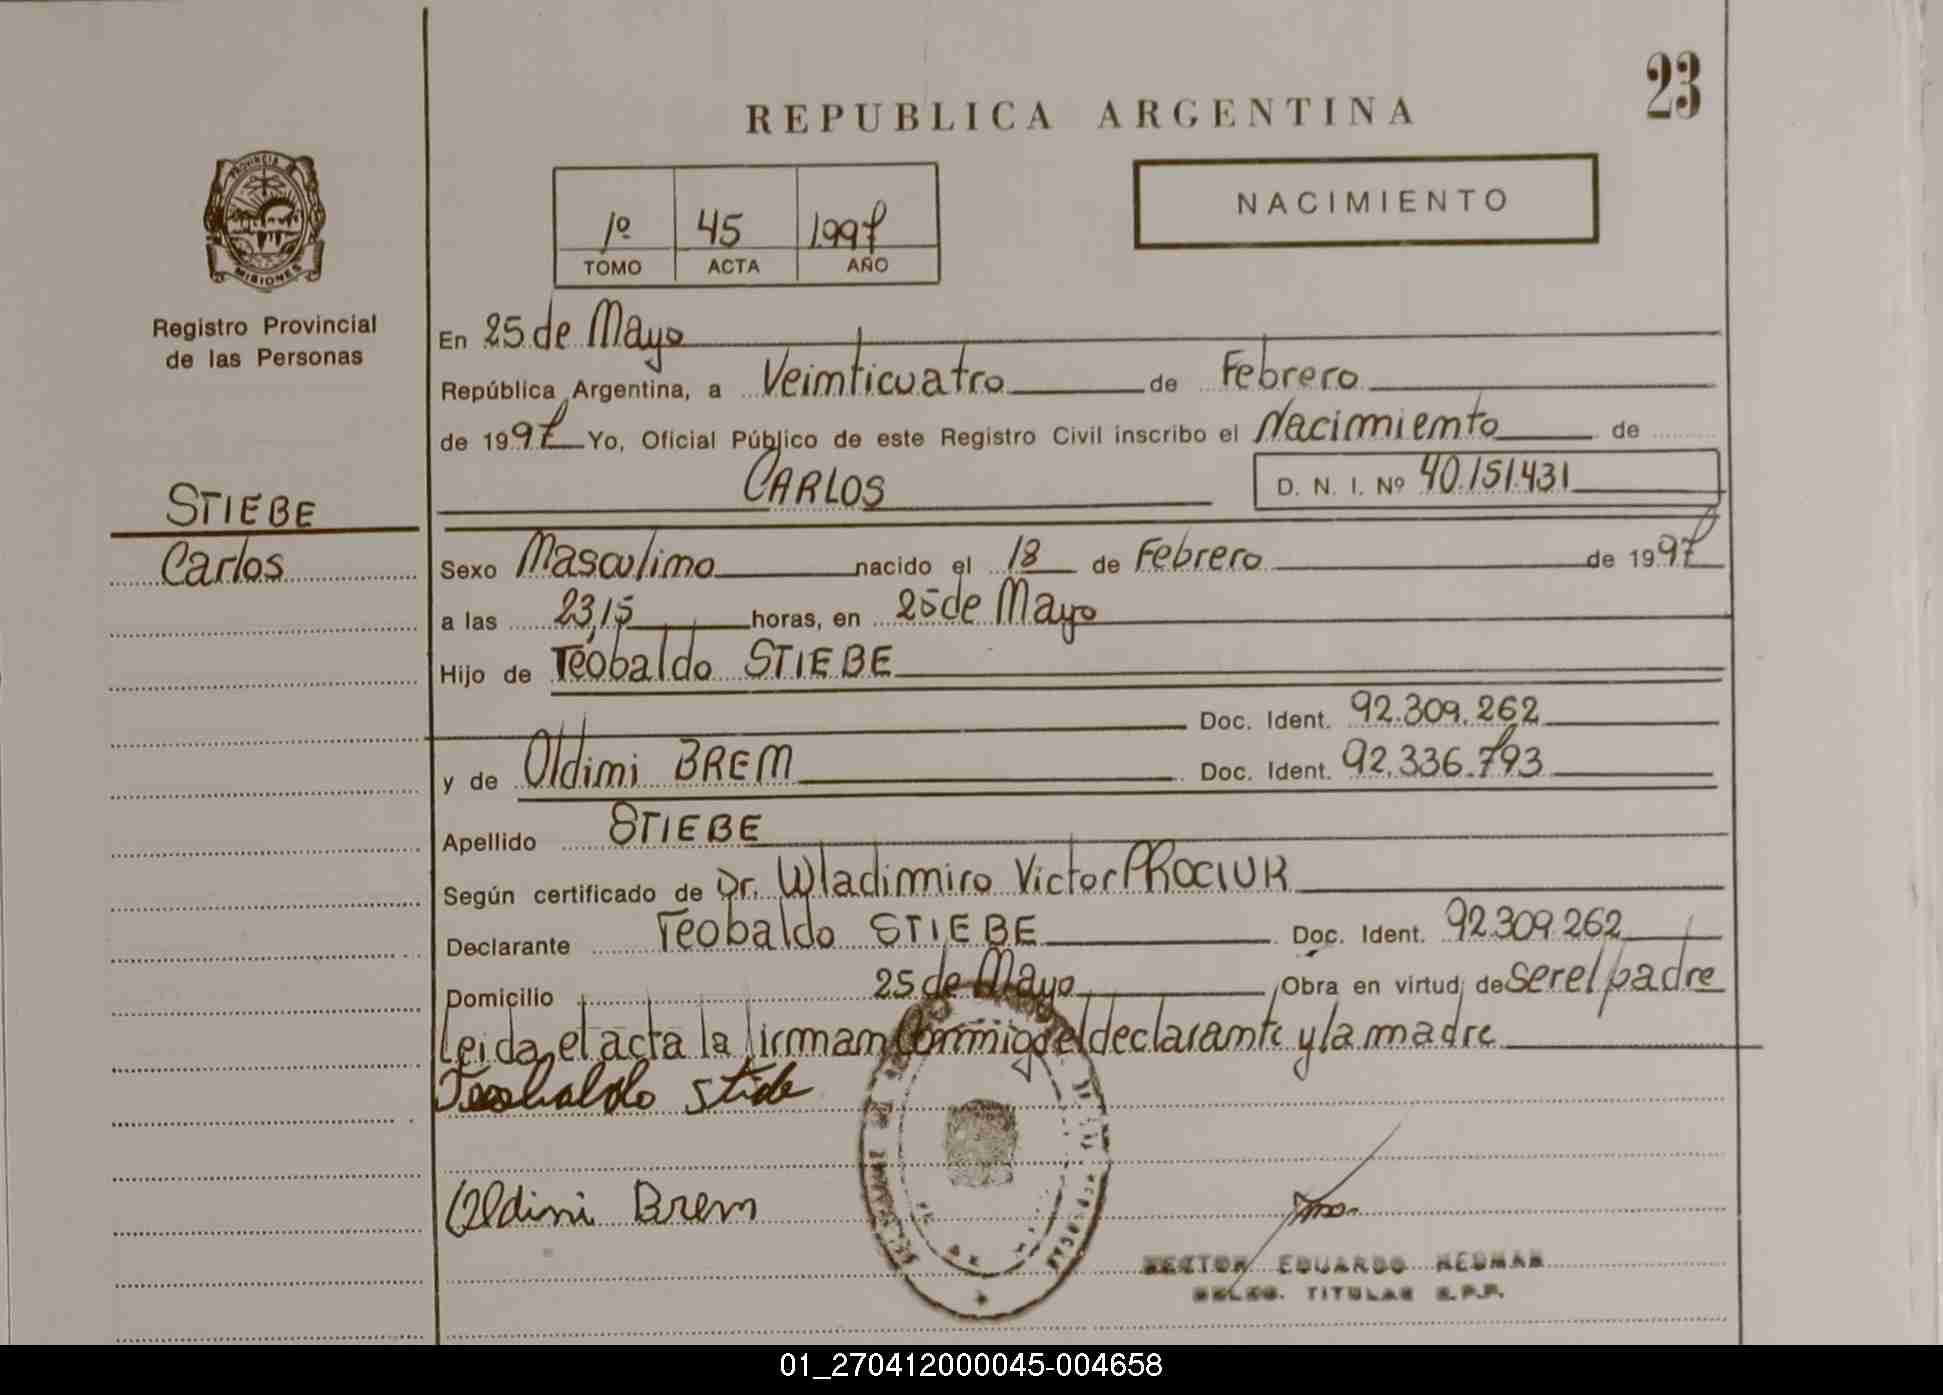 23
REPUBLICA ARGENTINA
PROVINCIA
MISIONES
1º 45 1997
TOMO ACTA AÑO
NACIMIENTO
Registro Provincial
de las Personas
En 25 de Mayo
República Argentina, a Veinticuatro de Febrero
de 1997 Yo, Oficial Público de este Registro Civil inscribo el Nacimiento de
CARLOS D. N. I. Nº 40.151.431
STIEBE
Carlos
Sexo Masculino nacido el 18 de Febrero de 1997
a las 23,15 horas, en 25 de Mayo
Hijo de Teobaldo STIEBE
Doc. Ident. 92.309.262
y de Oldimi BREM Doc. Ident. 92.336.793
Apellido STIEBE
Según certificado de Dr. Wladimiro Victor PROCIUK
Declarante Teobaldo STIEBE Doc. Ident. 92.309.262
Domicilio 25 de Mayo Obra en virtud de ser el padre
Leida el acta la firman conmigo el declarante y la madre
Teobaldo Stiebe
Oldini Brem
HECTOR EDUARDO NEUMAN
DELEG. TITULAR R.P.P.
01_270412000045-004658